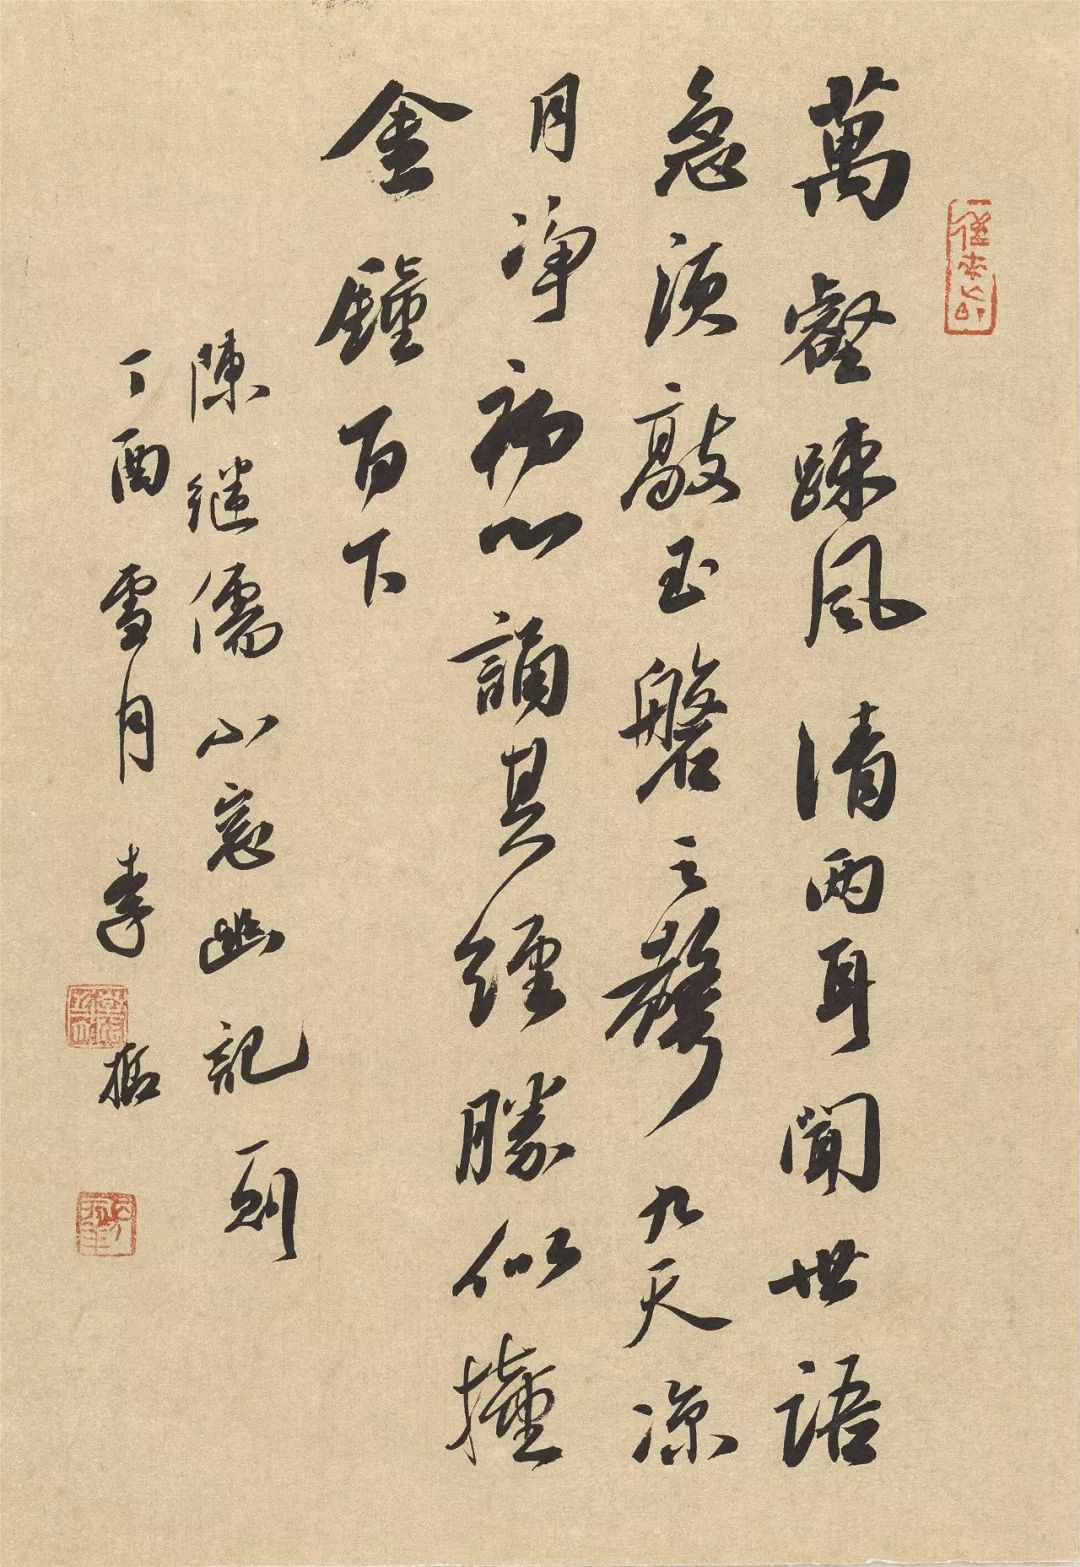 萬壑踈風清兩耳聞世語
急須敲玉磬之聲九天凉
月净初心誦其經勝似撞
金鐘百下
陳继儒小窓幽記一則
丁酉雪月李